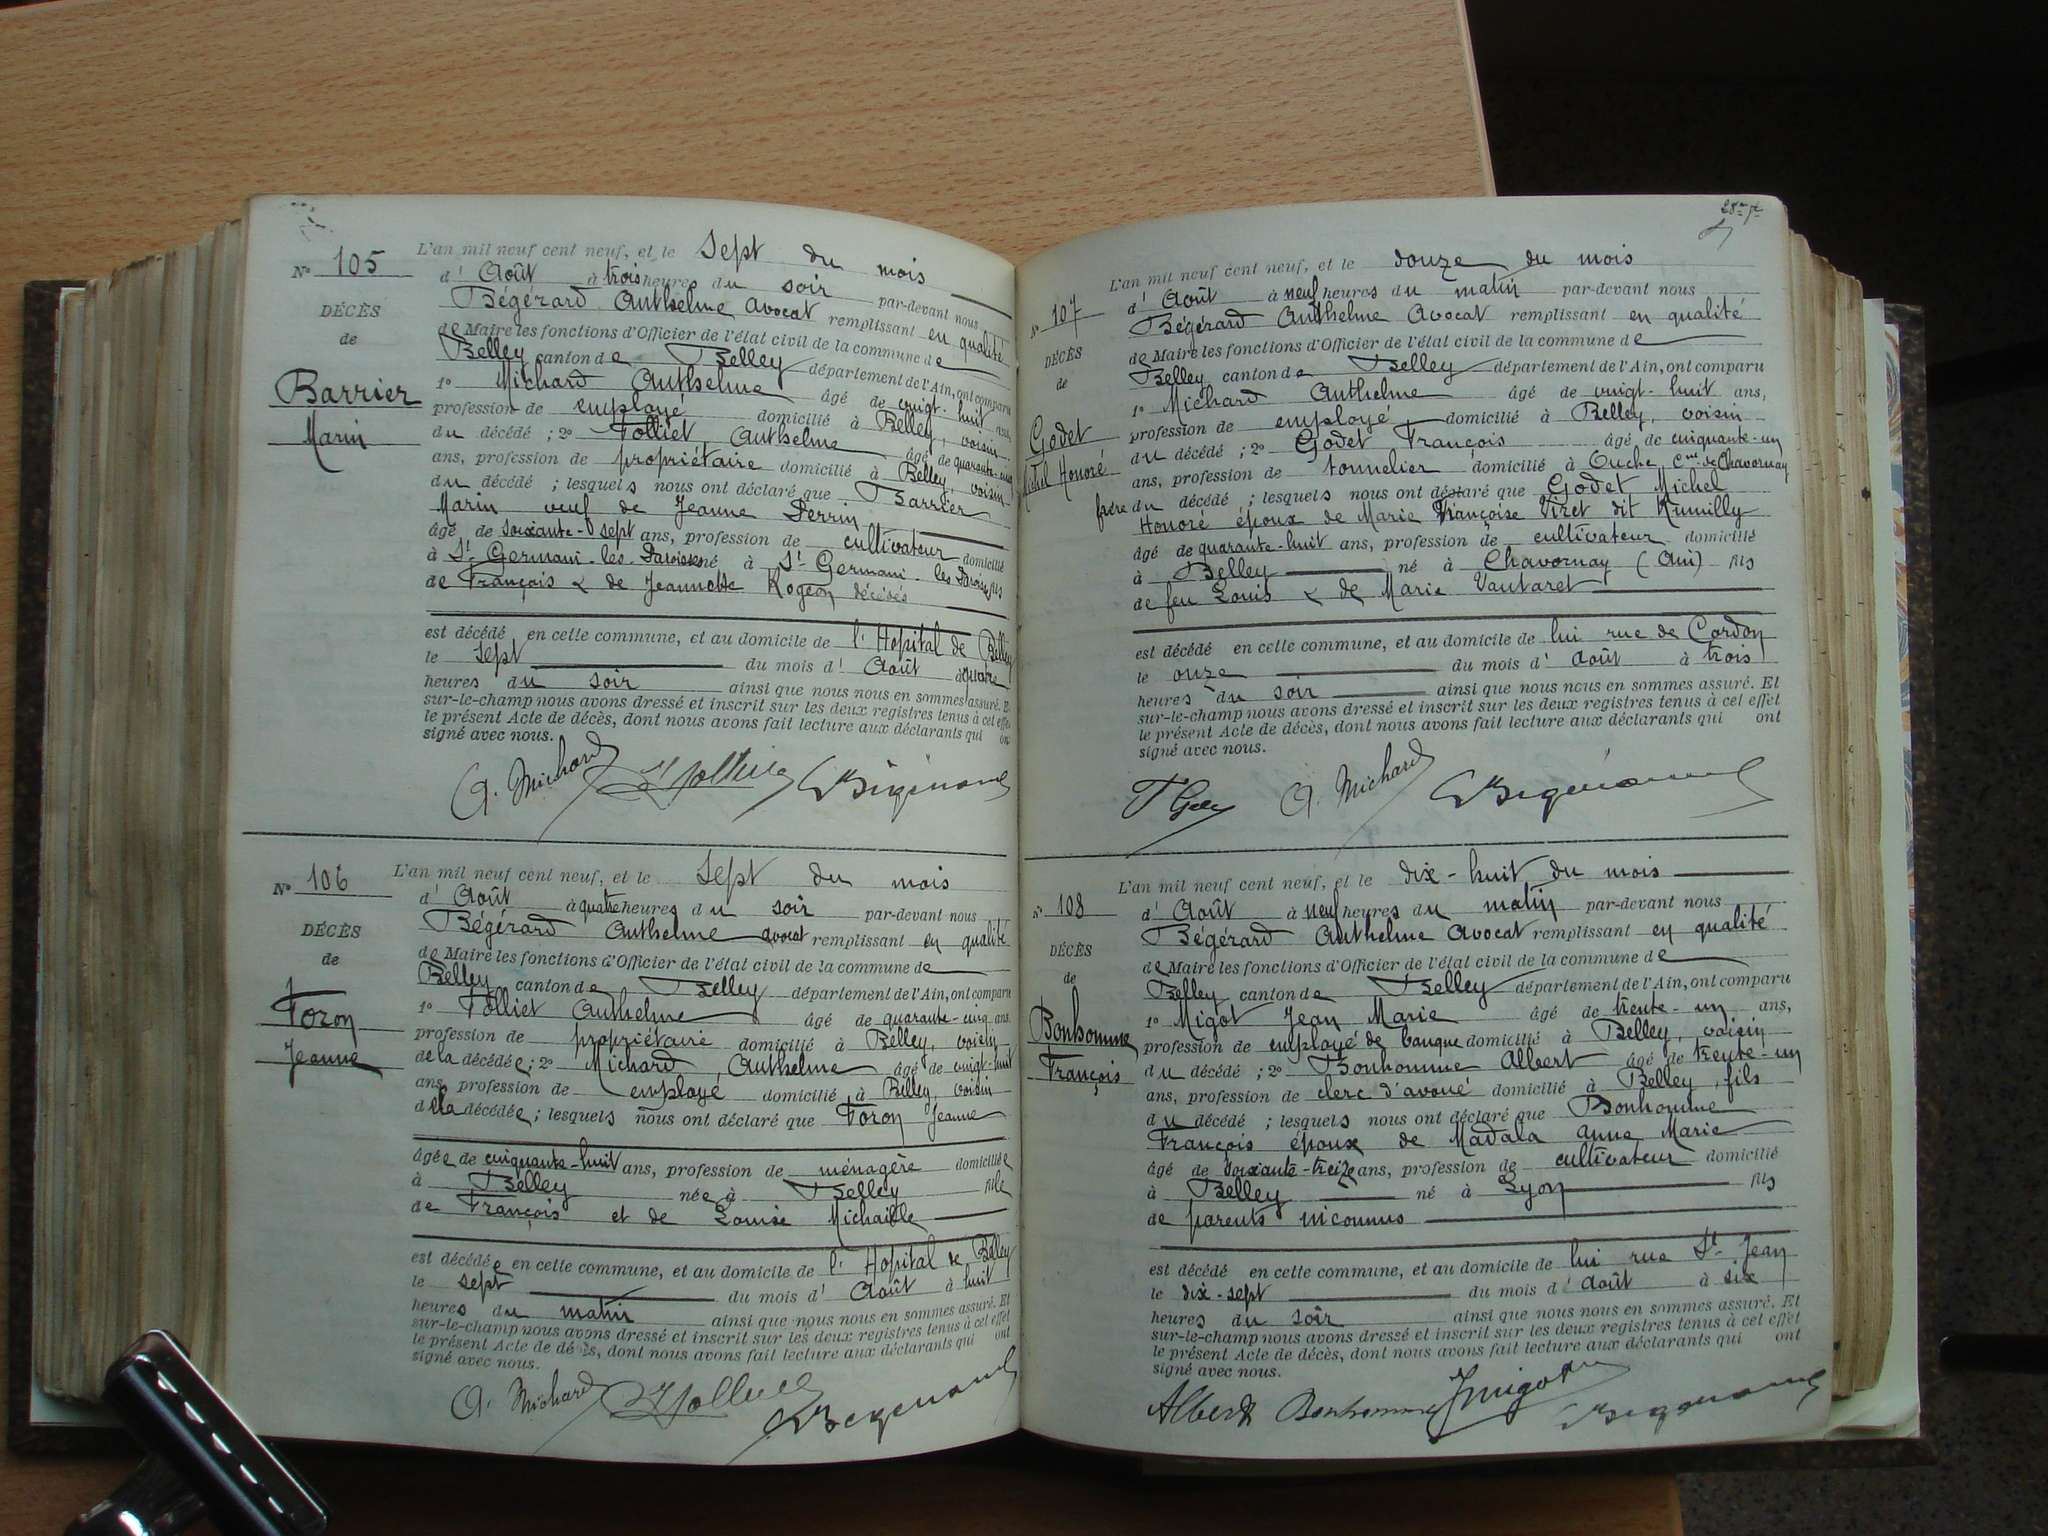 N° 105
DÉCÈS
de
Barrier
Marin
L'an mil neuf cent neuf, et le Sept du mois
d' Août à trois heures du soir par-devant nous
Bégérard Anthelme Avocat remplissant en qualité
de Maire les fonctions d'Officier de l'état civil de la commune de
Belley canton de Belley département de l'Ain, ont comparu
1° Michard Anthelme âgé de vingt-huit ans,
profession de employé domicilié à Belley, voisin
du décédé ; 2° Folliet, Anthelme âgé de quarante-cinq
ans, profession de propriétaire domicilié à Belley, voisin
du décédé ; lesquels nous ont déclaré que Barrier
Marin veuf de Jeanne Perrin
âgé de soixante-sept ans, profession de cultivateur domicilié
à St Germain-les-Paroisses né à St Germain-les Paroisses fils
de François & de Jeannette Rogeon décédés
est décédé en cette commune, et au domicile de l'Hopital de Belley
le sept du mois d' Août à quatre
heures du soir ainsi que nous nous en sommes assuré. Et
sur-le-champ nous avons dressé et inscrit sur les deux registres tenus à cet effet
le présent Acte de décès, dont nous avons fait lecture aux déclarants qui ont
signé avec nous.
A. Michard Folliet Bégérard
N° 106
DÉCÈS
de
Foron
Jeanne
L'an mil neuf cent neuf, et le Sept du mois
d' Août à quatre heures du soir par-devant nous
Bégérard Anthelme avocat remplissant en qualité
de Maire les fonctions d'Officier de l'état civil de la commune de
Belley canton de Belley département de l'Ain, ont comparu
1° Folliet Anthelme âgé de quarante-cinq ans
profession de propriétaire domicilié à Belley, voisin
de la décédée ; 2° Michard, Anthelme âgé de vingt-huit
ans, profession de employé domicilié à Belley, voisin
de la décédée ; lesquels nous ont déclaré que Foron Jeanne
âgée de cinquante-huit ans, profession de ménagère domiciliée
à Belley née à Belley fille
de François et de Louise Michaille
est décédée en cette commune, et au domicile de l'Hopital de Belley
le sept du mois d' Août à huit
heures du matin ainsi que nous nous en sommes assuré. Et
sur-le-champ nous avons dressé et inscrit sur les deux registres tenus à cet effet
le présent Acte de décès, dont nous avons fait lecture aux déclarants qui ont
signé avec nous.
A. Michard Folliet Bégérard
N° 107
DÉCÈS
de
Godet
Michel Honoré
L'an mil neuf cent neuf, et le douze du mois
d' Août à neuf heures du matin par-devant nous
Bégérard Anthelme Avocat remplissant en qualité
de Maire les fonctions d'Officier de l'état civil de la commune de
Belley canton de Belley département de l'Ain, ont comparu
1° Michard Anthelme âgé de vingt-huit ans,
profession de employé domicilié à Belley, voisin
du décédé ; 2° Godet François âgé de cinquante-un
ans, profession de tonnelier domicilié à Ouche, Cne de Chavornay
frère du décédé ; lesquels nous ont déclaré que Godet Michel
Honoré époux de Marie Françoise Viret dit Rumilly
âgé de quarante-huit ans, profession de cultivateur domicilié
à Belley né à Chavornay (Ain) fils
de feu Louis & de Marie Vautaret
est décédé en cette commune, et au domicile de lui rue de Cordon
le onze du mois d' Août à trois
heures du soir ainsi que nous nous en sommes assuré. Et
sur-le-champ nous avons dressé et inscrit sur les deux registres tenus à cet effet
le présent Acte de décès, dont nous avons fait lecture aux déclarants qui ont
signé avec nous.
A. Michard Bégérard
N° 108
DÉCÈS
de
Bonhomme
François
L'an mil neuf cent neuf, et le dix-huit du mois
d' Août à neuf heures du matin par-devant nous
Bégérard Anthelme Avocat remplissant en qualité
de Maire les fonctions d'Officier de l'état civil de la commune de
Belley canton de Belley département de l'Ain, ont comparu
1° Migot Jean Marie âgé de trente-un ans,
profession de employé de banque domicilié à Belley, voisin
du décédé ; 2° Bonhomme Albert âgé de trente-un
ans, profession de clerc d'avoué domicilié à Belley, fils
du décédé ; lesquels nous ont déclaré que Bonhomme
François époux de Madala Anne Marie
âgé de soixante-treize ans, profession de cultivateur domicilié
à Belley né à Lyon fils
de parents inconnus
est décédé en cette commune, et au domicile de lui rue St Jean
le dix-sept du mois d' Août à six
heures du soir ainsi que nous nous en sommes assuré. Et
sur-le-champ nous avons dressé et inscrit sur les deux registres tenus à cet effet
le présent Acte de décès, dont nous avons fait lecture aux déclarants qui ont
signé avec nous.
Albert Bonhomme Jmigot Bégérard